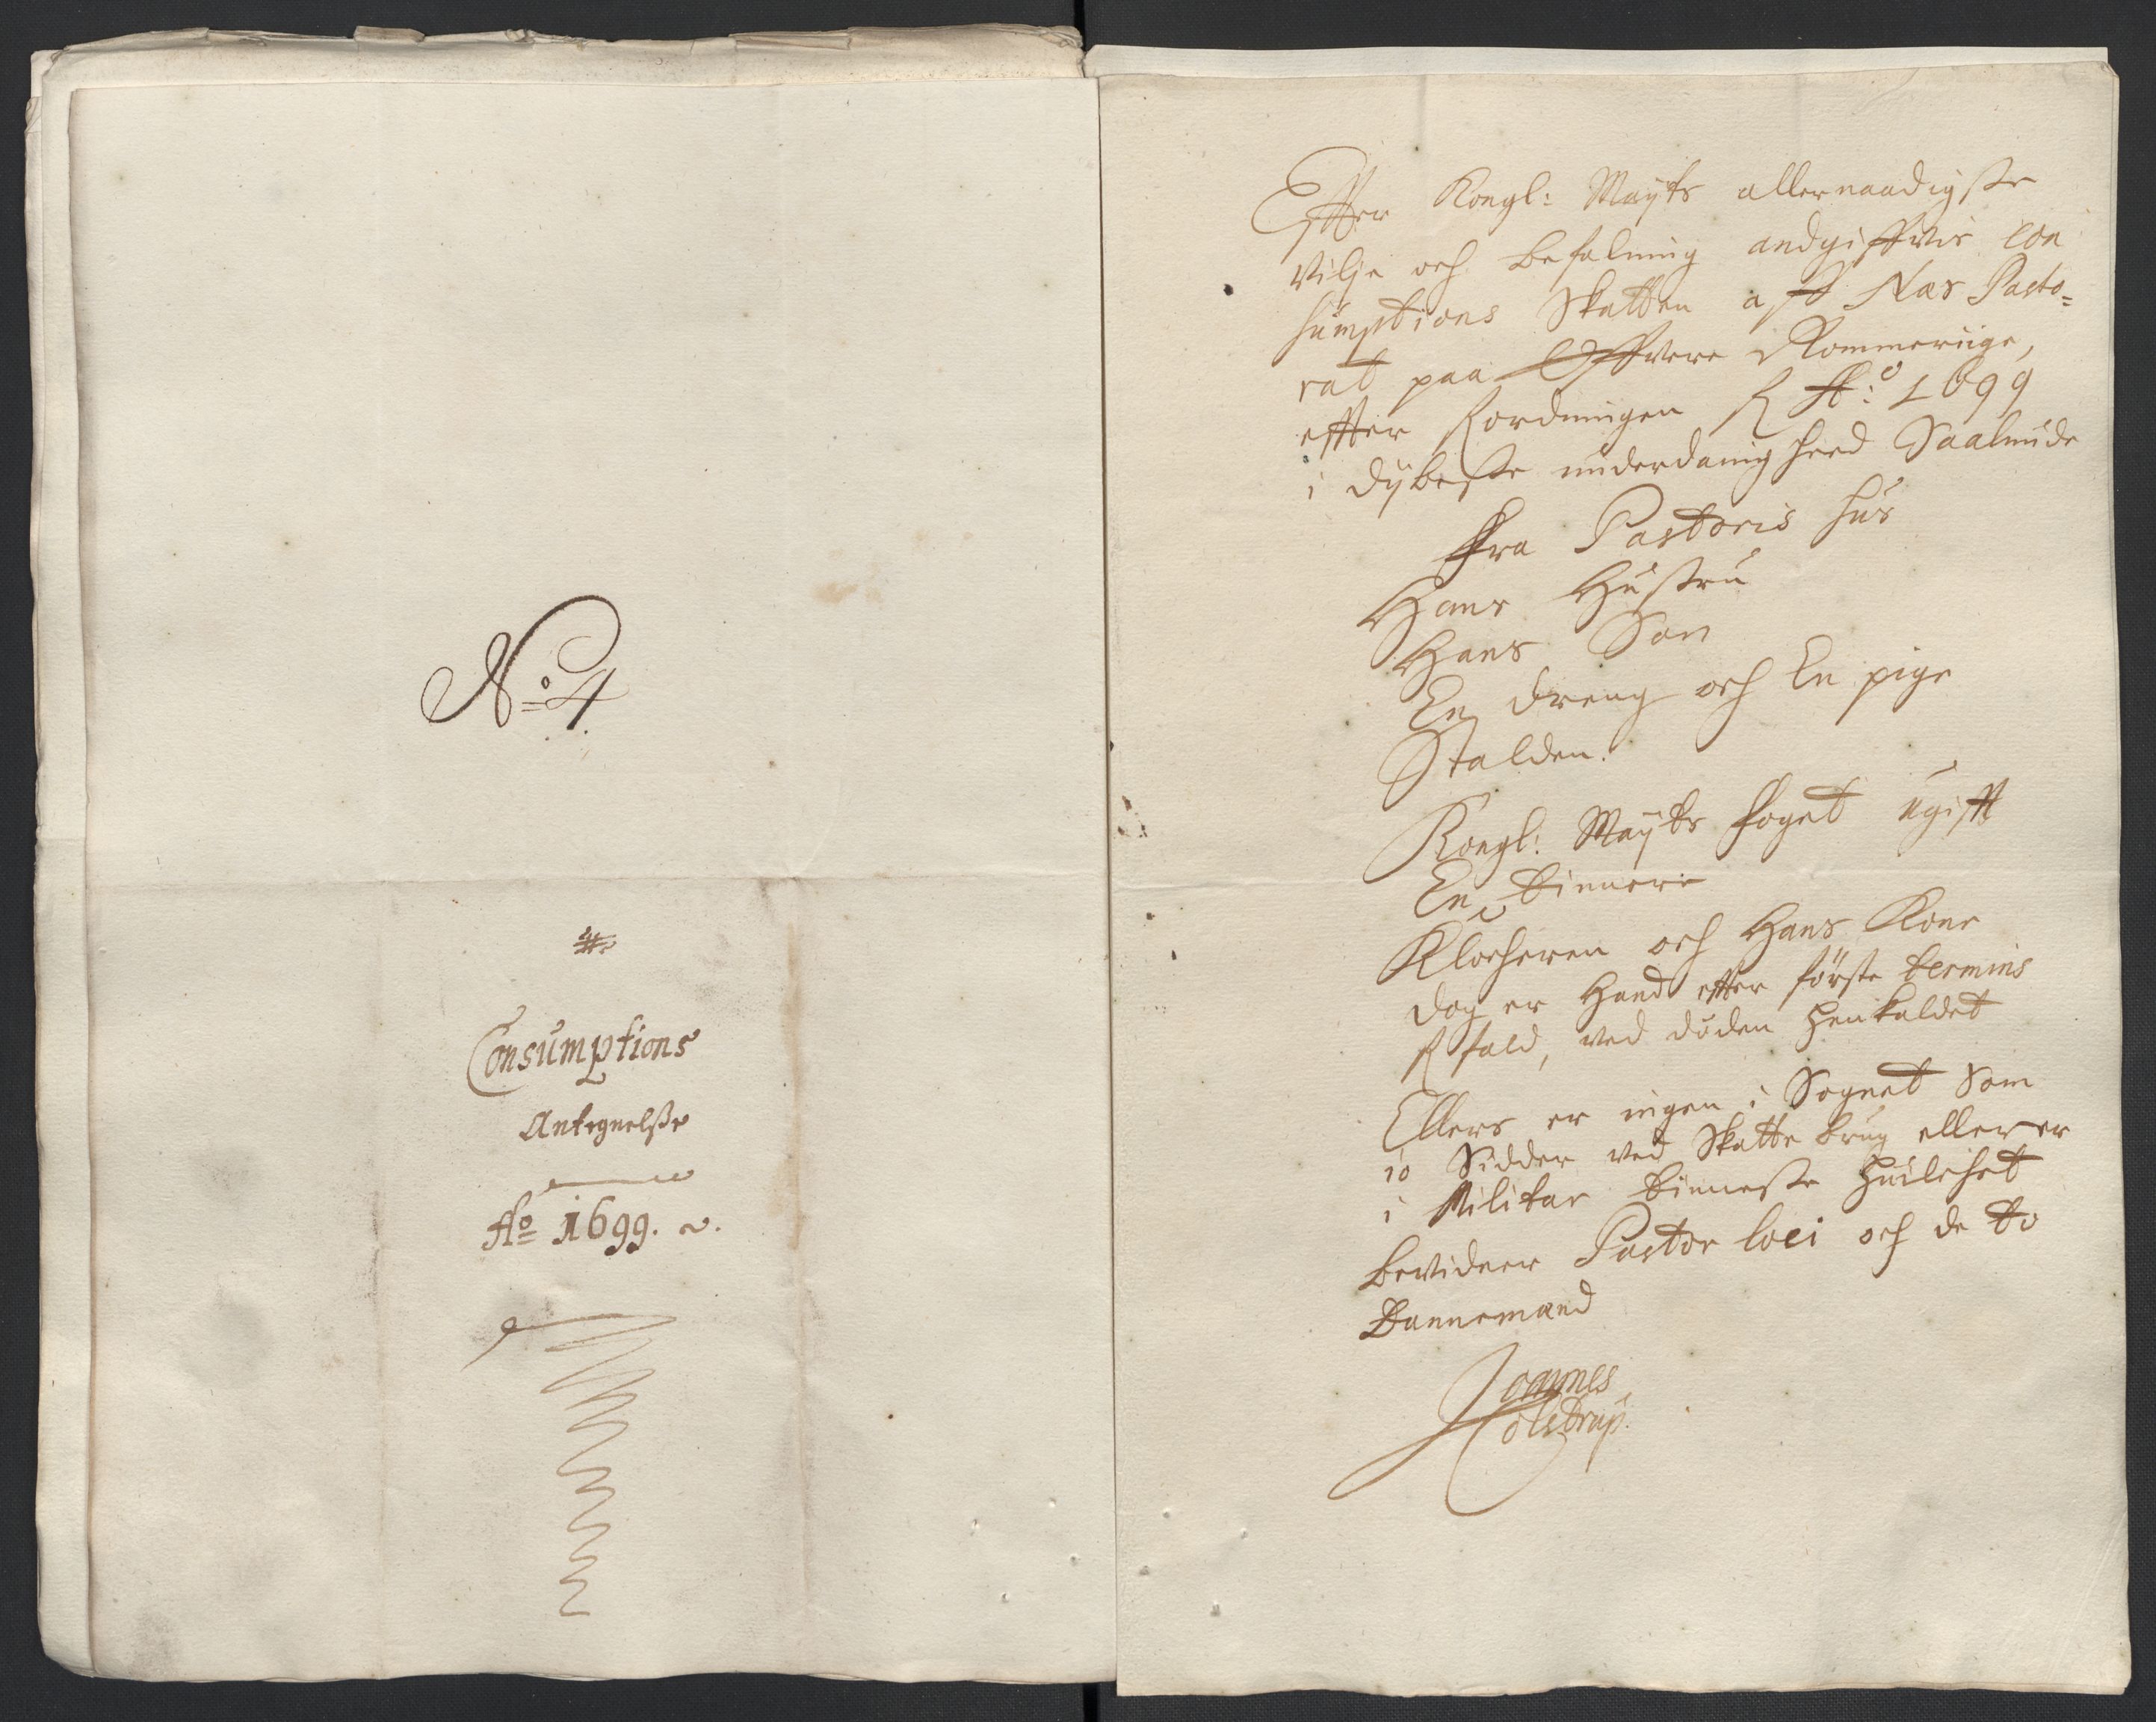 No 4
Consumptions
Antegnelsse
Ao 1699.
Effter Kongl: Mayts allernaadigste
Vilje och befalning andgiffvis Con
sumptions Skatten aff Næs Pasto=
rat paa Offvere Rommeriige,
effter fordningen Ao: 1699
i dybeste underdanigheed Saalunde
Fra Pastoris hus
Hans Hustru
Hans Søn
En dreng och En pige
Stalden.
Kongl: Mayts foget ugifft
En tienere
Klocheren och Hans Kone
dog er Hand effter første termins
fald, ved døden henkaldet
Ellers er ingen i Sognet Som
io Sidder ved Skatte brug eller er
i Militar tienneste huilchet
bevidner Pastor loci och de to
Dannemænd
Joannes
Colstrup.